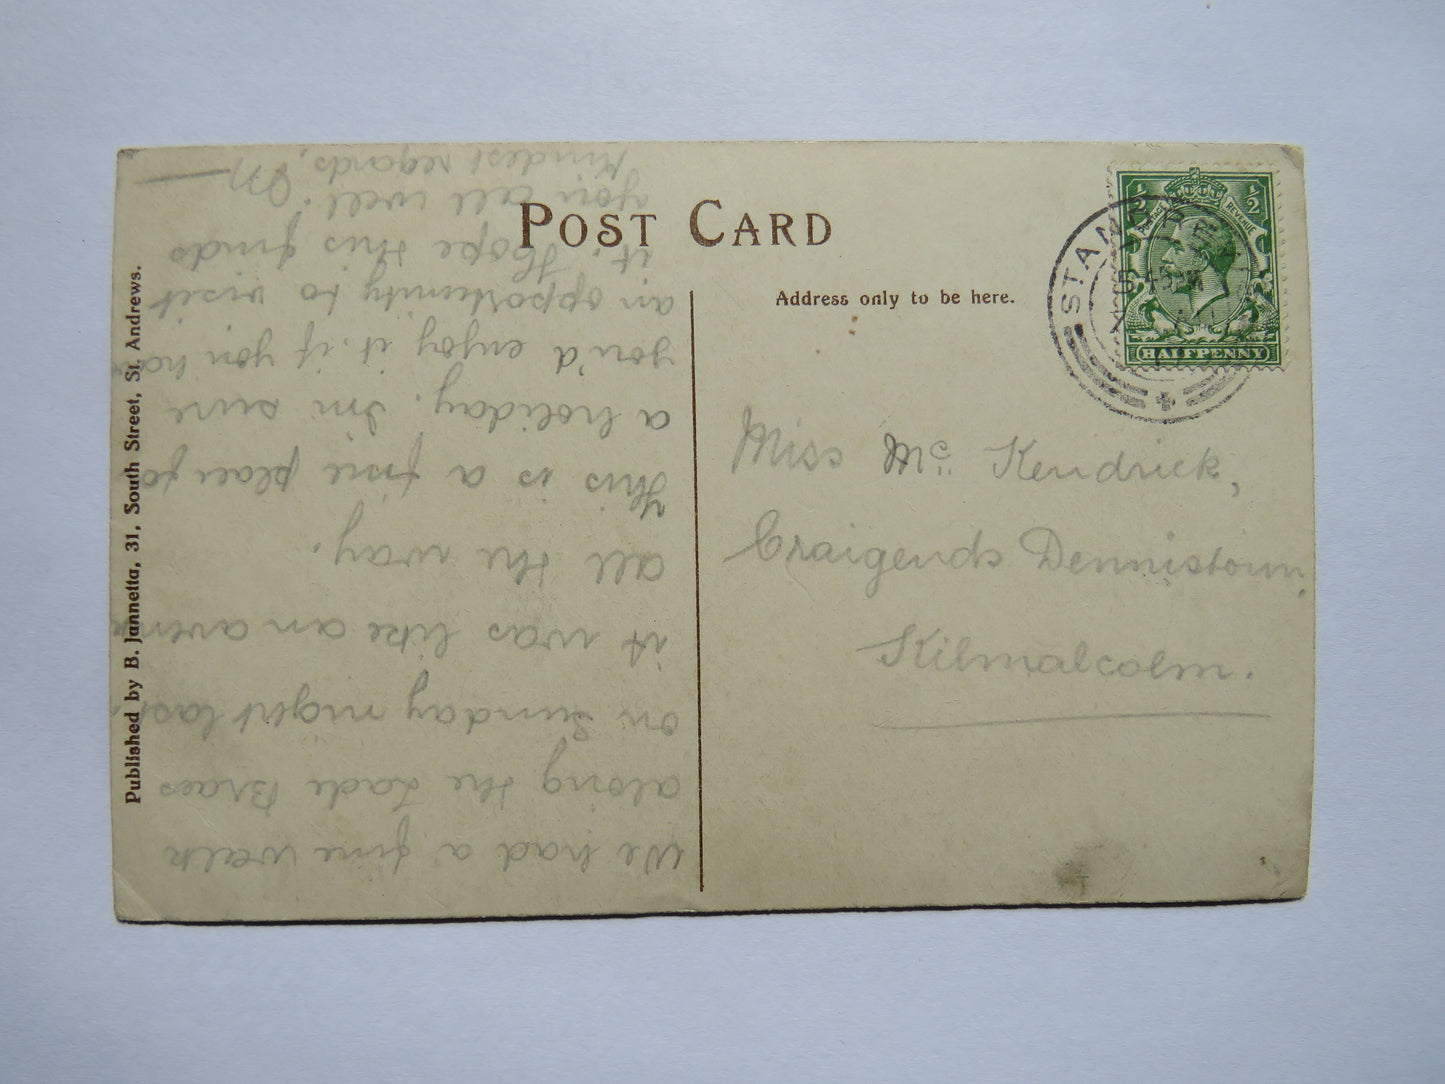 POST CARD
Address only to be here.
Published by B. Jannetta, 31, South Street, St. Andrews.
HALFPENNY
½ ½
POSTAGE REVENUE
ST ANDREWS
Miss Mc Kendrick,
Craigends Dennistoun.
Kilmalcolm.
We had a fine walk
along the Lade Braes
on Sunday night last,
it was like an avenue
all the way.
This is a fine place for
a holiday. Im sure
you'd enjoy it if you have
an opportunity to visit
it. Hope this finds
you all well.
Kindest regards,